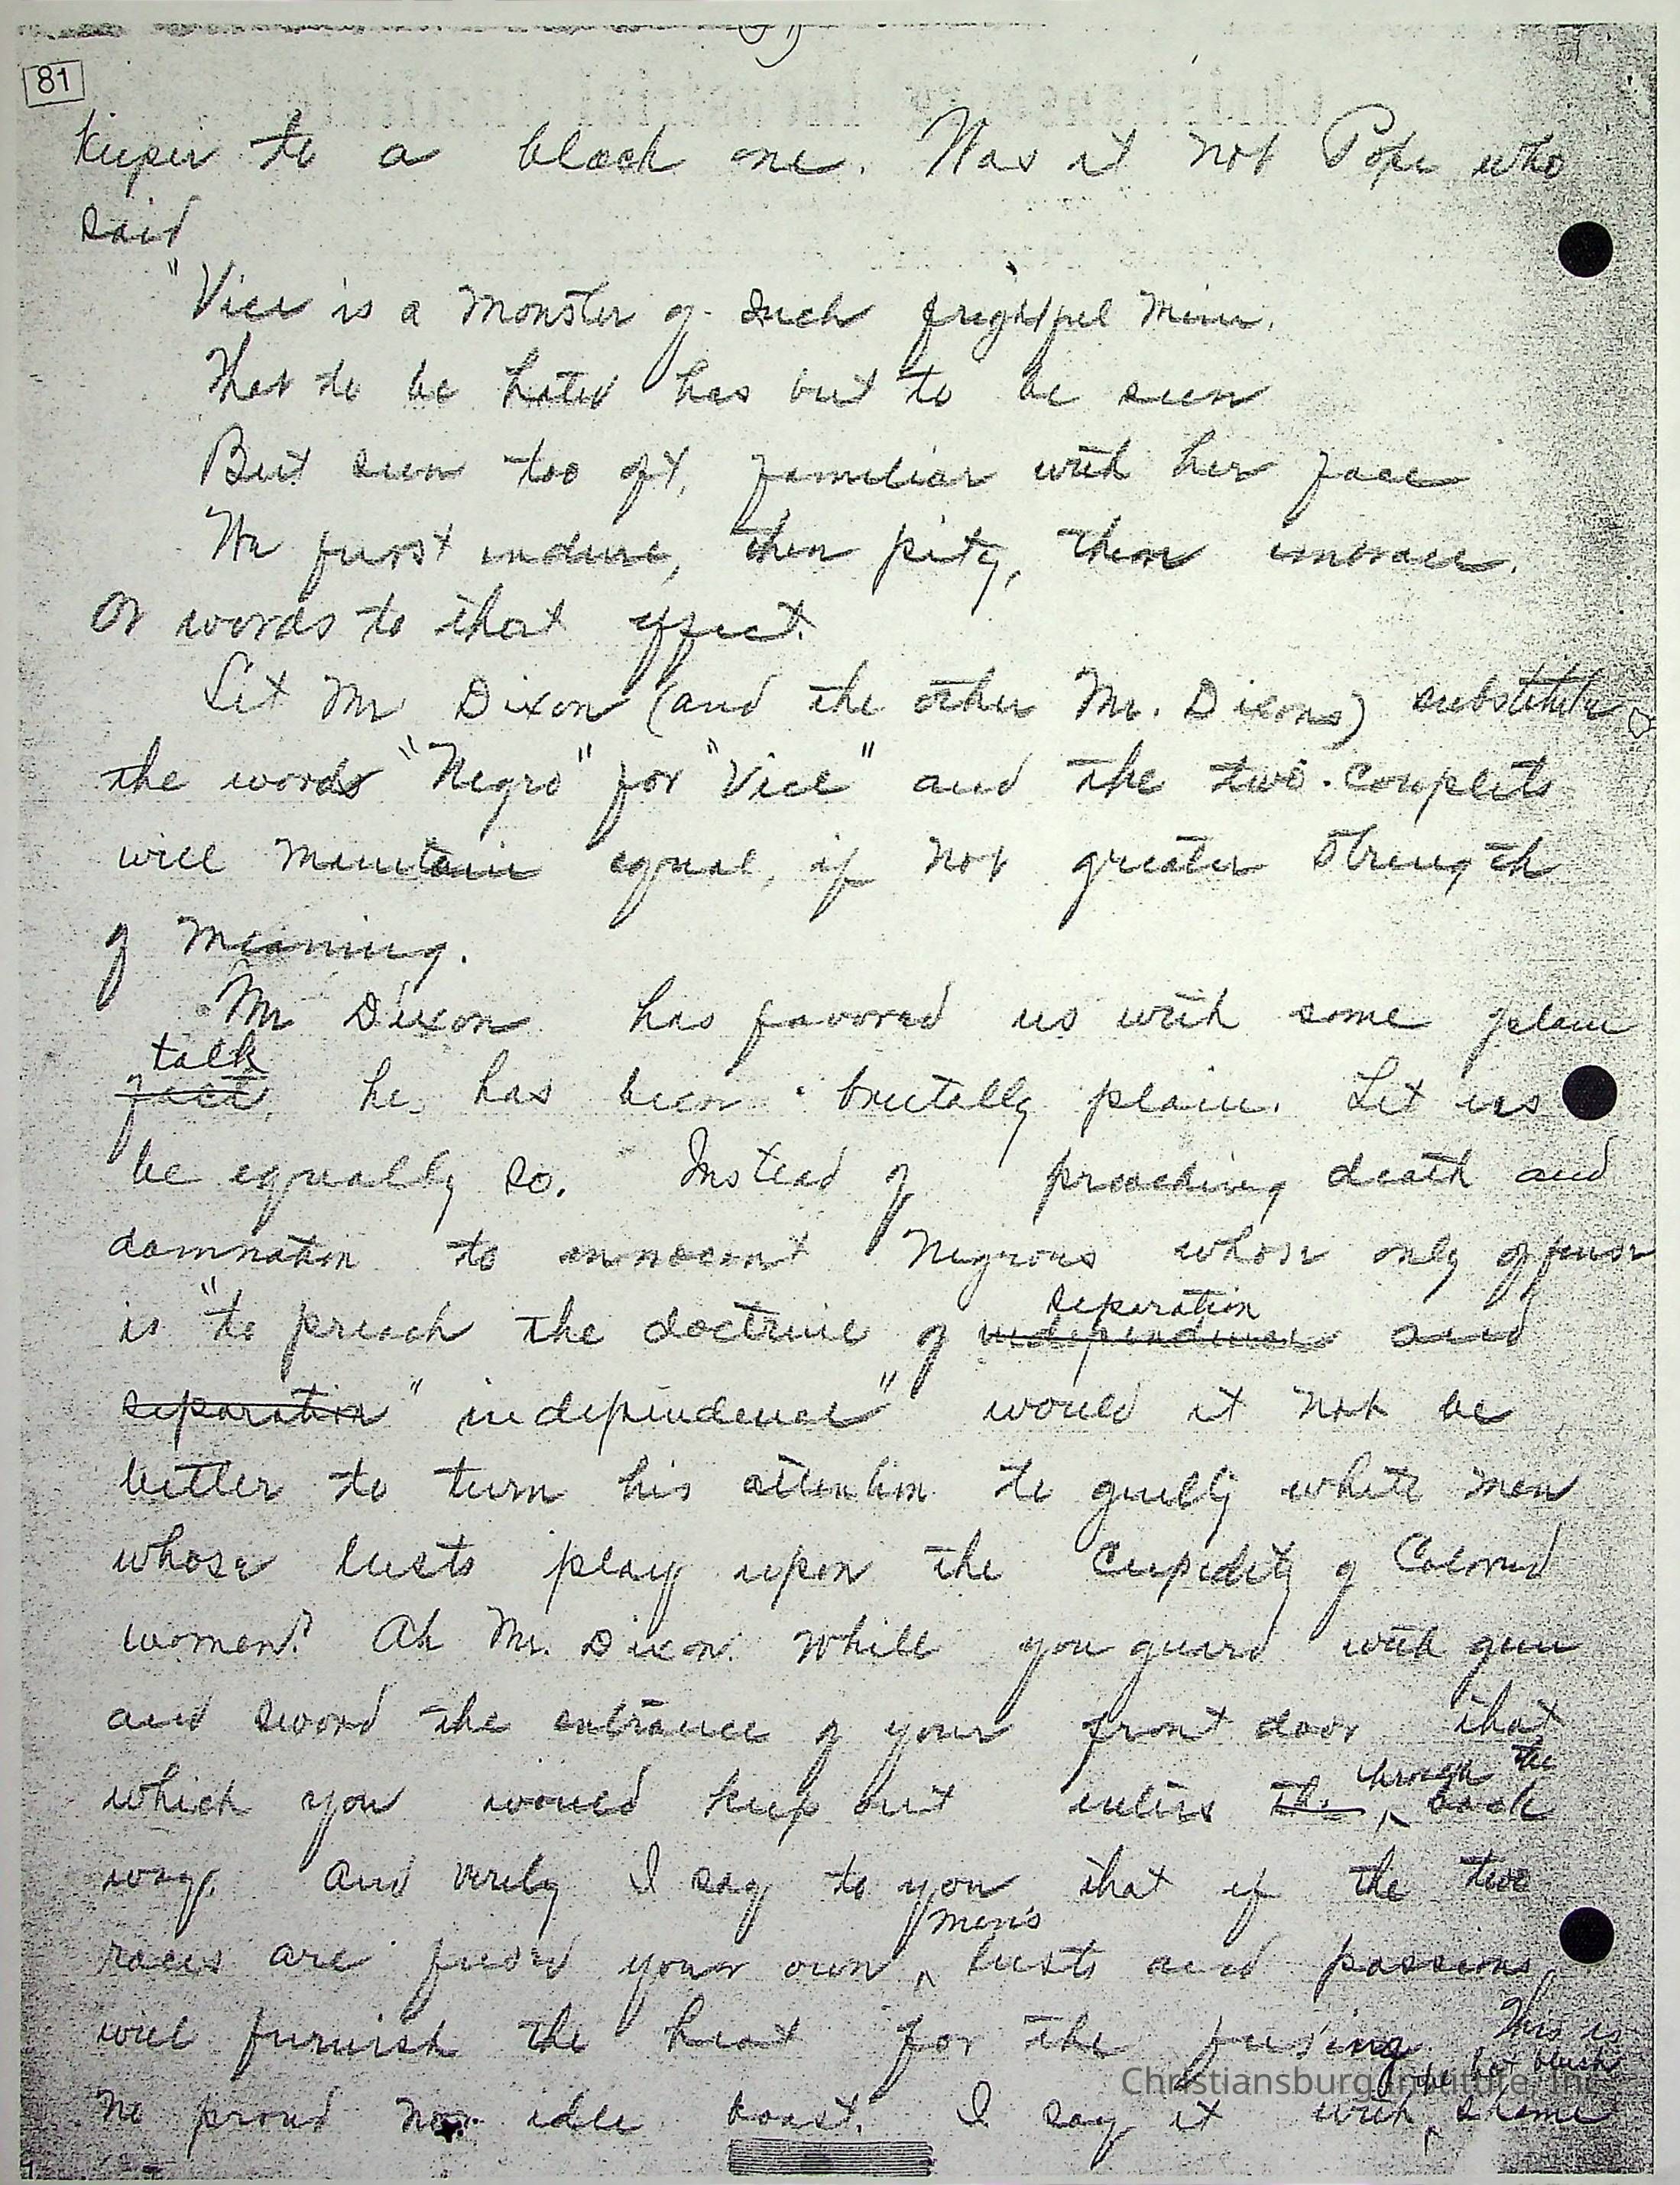 81
keeper to a black one. Was it not Pope who
said
"Vice is a monster of such frightful mien.
That to be hated has but to be seen
But seen too oft, familiar with her face
We first endure, then pity, then embrace.
Or words to that effect.
Let Mr Dixon (and the other Mr. Dixons) substitute
the words "Negro" for "Vice" and the two couplets
will maintain equal, if not greater strength
of meaning.
Mr Dixon has favored us with some plain
talk
fact, he has been brutally plain. Let us
be equally so. Instead of preaching death and
damnation to innocent Negroes whose only offense
is "to preach the doctrine of independence and
separation
separation" independence" would it not be
better to turn his attention to guilty white men
whose lusts play upon the cupidity of Colored
women? Ah Mr. Dixon. While you guard with gun
and sword the entrance of your front door that
which you would keep out enters the back
through the
way. And verily I say to you that if the two
races are fused your own lusts and passions
men's
will furnish the heat for the fusing. This is
no proud nor idle boast. I say it with shame
blush
Christiansburg Institute, Inc